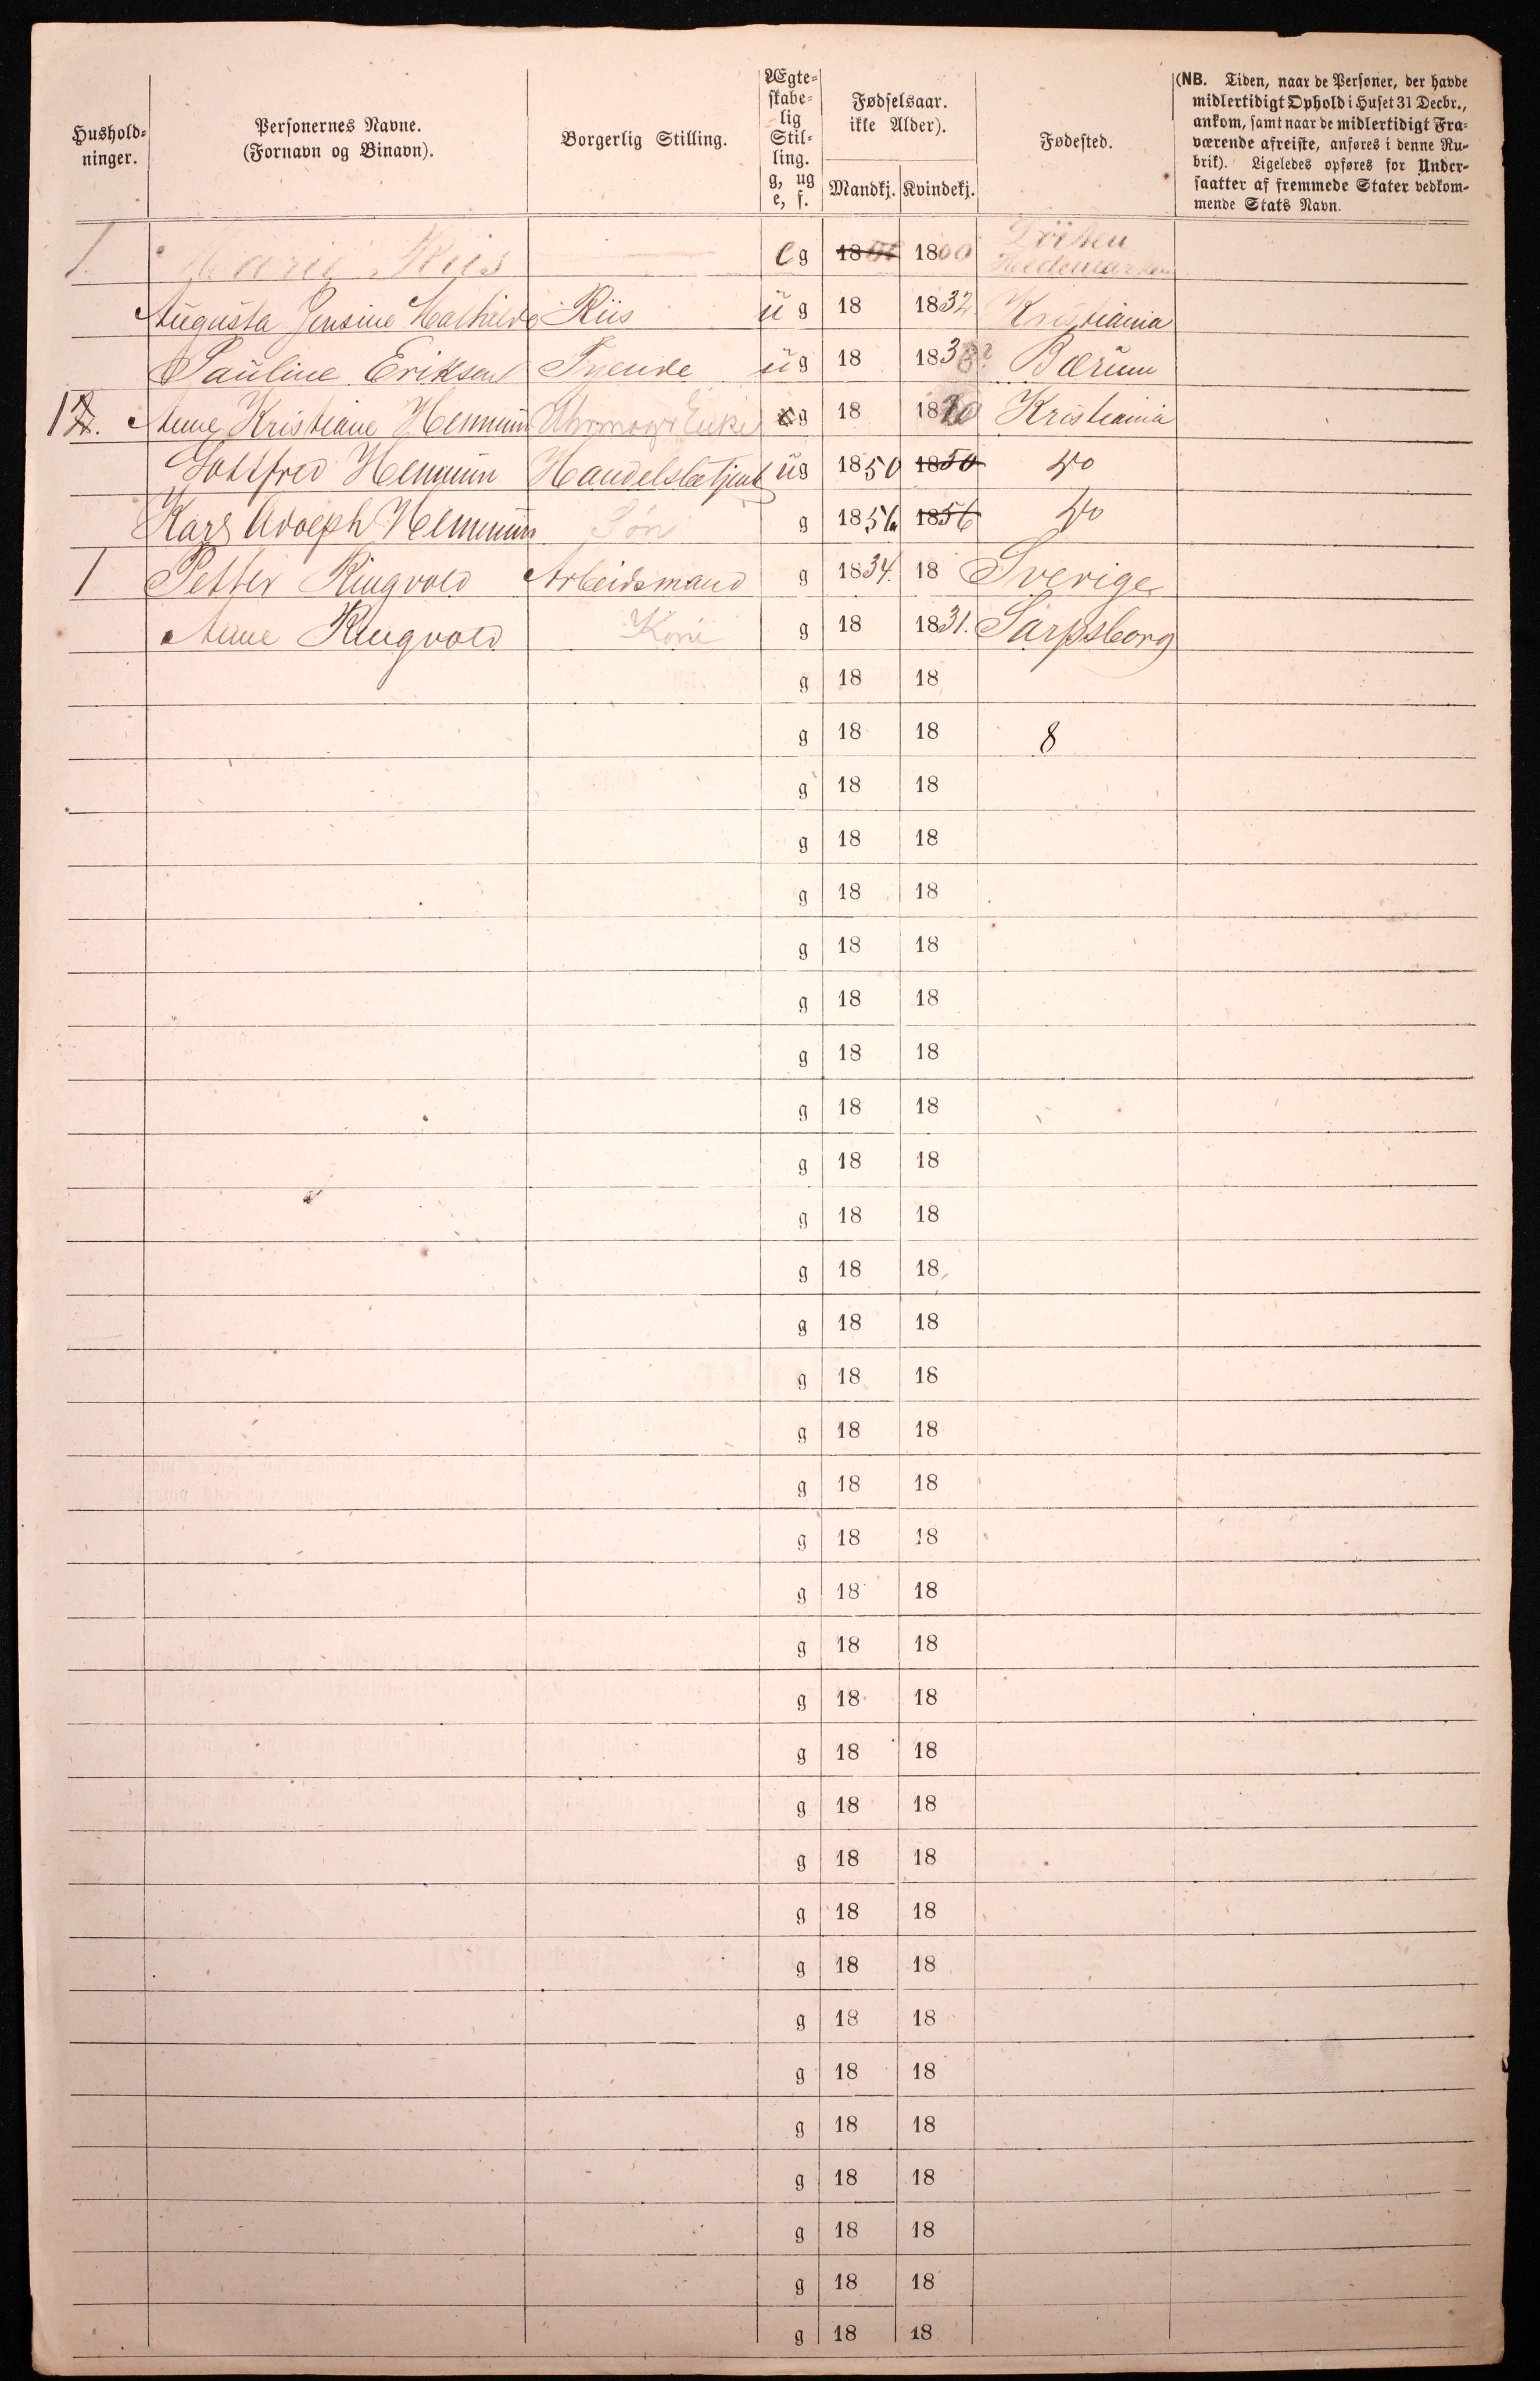 Hushold-
ninger.
Personernes Navne.
(Fornavn og Binavn).
Borgerlig Stilling.
Ægte-
skabe-
lig
Stil-
ling.
g, ug
e, f.
Fødselsaar.
ikke Alder).
Mandkj. Kvindekj.
Fødested.
(NB. Tiden, naar de Personer, der havde
midlertidigt Ophold i Huset 31 Decbr.,
ankom, samt naar de midlertidigt Fra-
værende afreiste, anføres i denne Ru-
brik). Ligeledes opføres for Under-
saatter af fremmede Stater vedkom-
mende Stats Navn.
1 Marie Riis eg 1800 1800 Löiten Hedemarken
Augusta Jensine Mathilde Riis üg 18 1832 Kristiania
Pauline Eriksen Tyende üg 18 183 ? Bærum
1 Anne Kristiane Hemmin g 18 18 Kristiania
Gottfred Hemmin Handelsbetjent üg 1850 1850 do
Karl Adolph Hemmin Søn g 1856 1856 do
1 Petter Ringvold Arbeidsmand g 1834. 18 Sverige
Anne Ringvold Kone g 18 1831. Sarpsborg
g 18 18
g 18 18 8
g 18 18
g 18 18
g 18 18
g 18 18
g 18 18
g 18 18
g 18 18
g 18 18
g 18 18
g 18 18
g 18 18
g 18 18
g 18 18
g 18 18
g 18 18
g 18 18
g 18 18
g 18 18
g 18 18
g 18 18
g 18 18
g 18 18
g 18 18
g 18 18
g 18 18
g 18 18
g 18 18
g 18 18
g 18 18
g 18 18